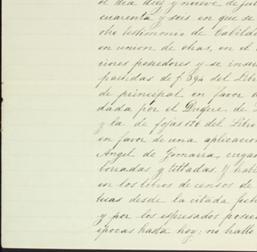 el dia diez y nueve de ju
cuarenta y seis en que se
cho testimonio de Cabild
en union de otras, en el
riores poseedores y se ins
partidas de f 394 del Lib
de principal en favor d
dada por el Duque, de
y la de fojas 150 del Libro
en favor de una aplicacion
Angel de Gomarra, cuya
bonadas y tildadas. Y hab
en los libros de censos de
tecas desde la citada fech
y por los espresados posee
epocas hasta hoy: no halle